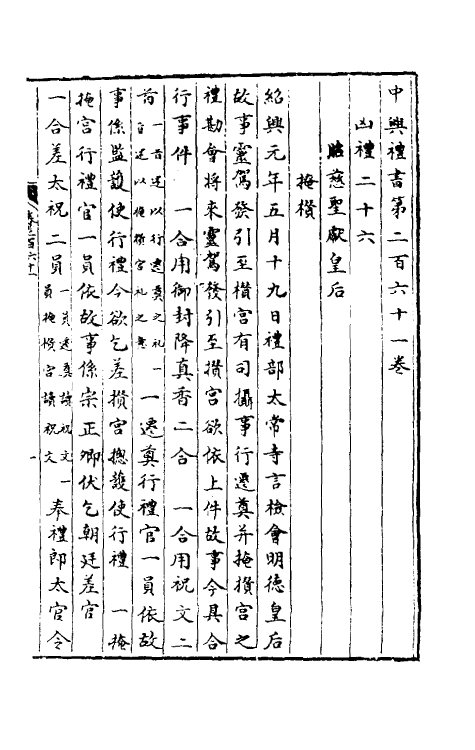 中興禮書第二百六十一卷
凶禮二十六
昭慈聖獻皇后
掩攢
紹興元年五月十九日禮部太常寺言檢會明德皇后
故事靈駕發引至攢宮有司攝事行遷奠并掩攢宮之
禮勘會將來靈駕發引至攢宮欲依上件故事今具合
行事件　一合用御封降真香二合　一合用祝文二
首一首述以行遷奠之禮一首述以掩攢宮礼之意　一遷奠行禮官一員依故
事係監護使行禮今欲乞差攢宮摠護使行禮　一掩
掩宮行禮官一員依故事係宗正卿伏乞朝廷差官
一合差太祝二員一員遷奠讀祝文一員掩攢宮讀祝文　一奉禮郎太官令